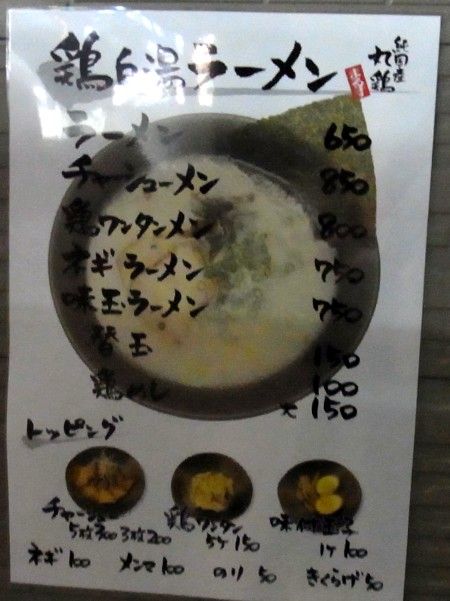 鶏白湯ラーメン
純国産
丸鶏
ラーメン 650
チャーシューメン 850
鶏ワンタンメン 800
ネギラーメン 750
味玉ラーメン 750
替玉 150
鶏めし 100
大 150
トッピング
チャーシュー
5枚300 3枚200
鶏ワンタン
5ケ150
味付玉子
1ケ100
ネギ100 メンマ100 のり50 きくらげ50